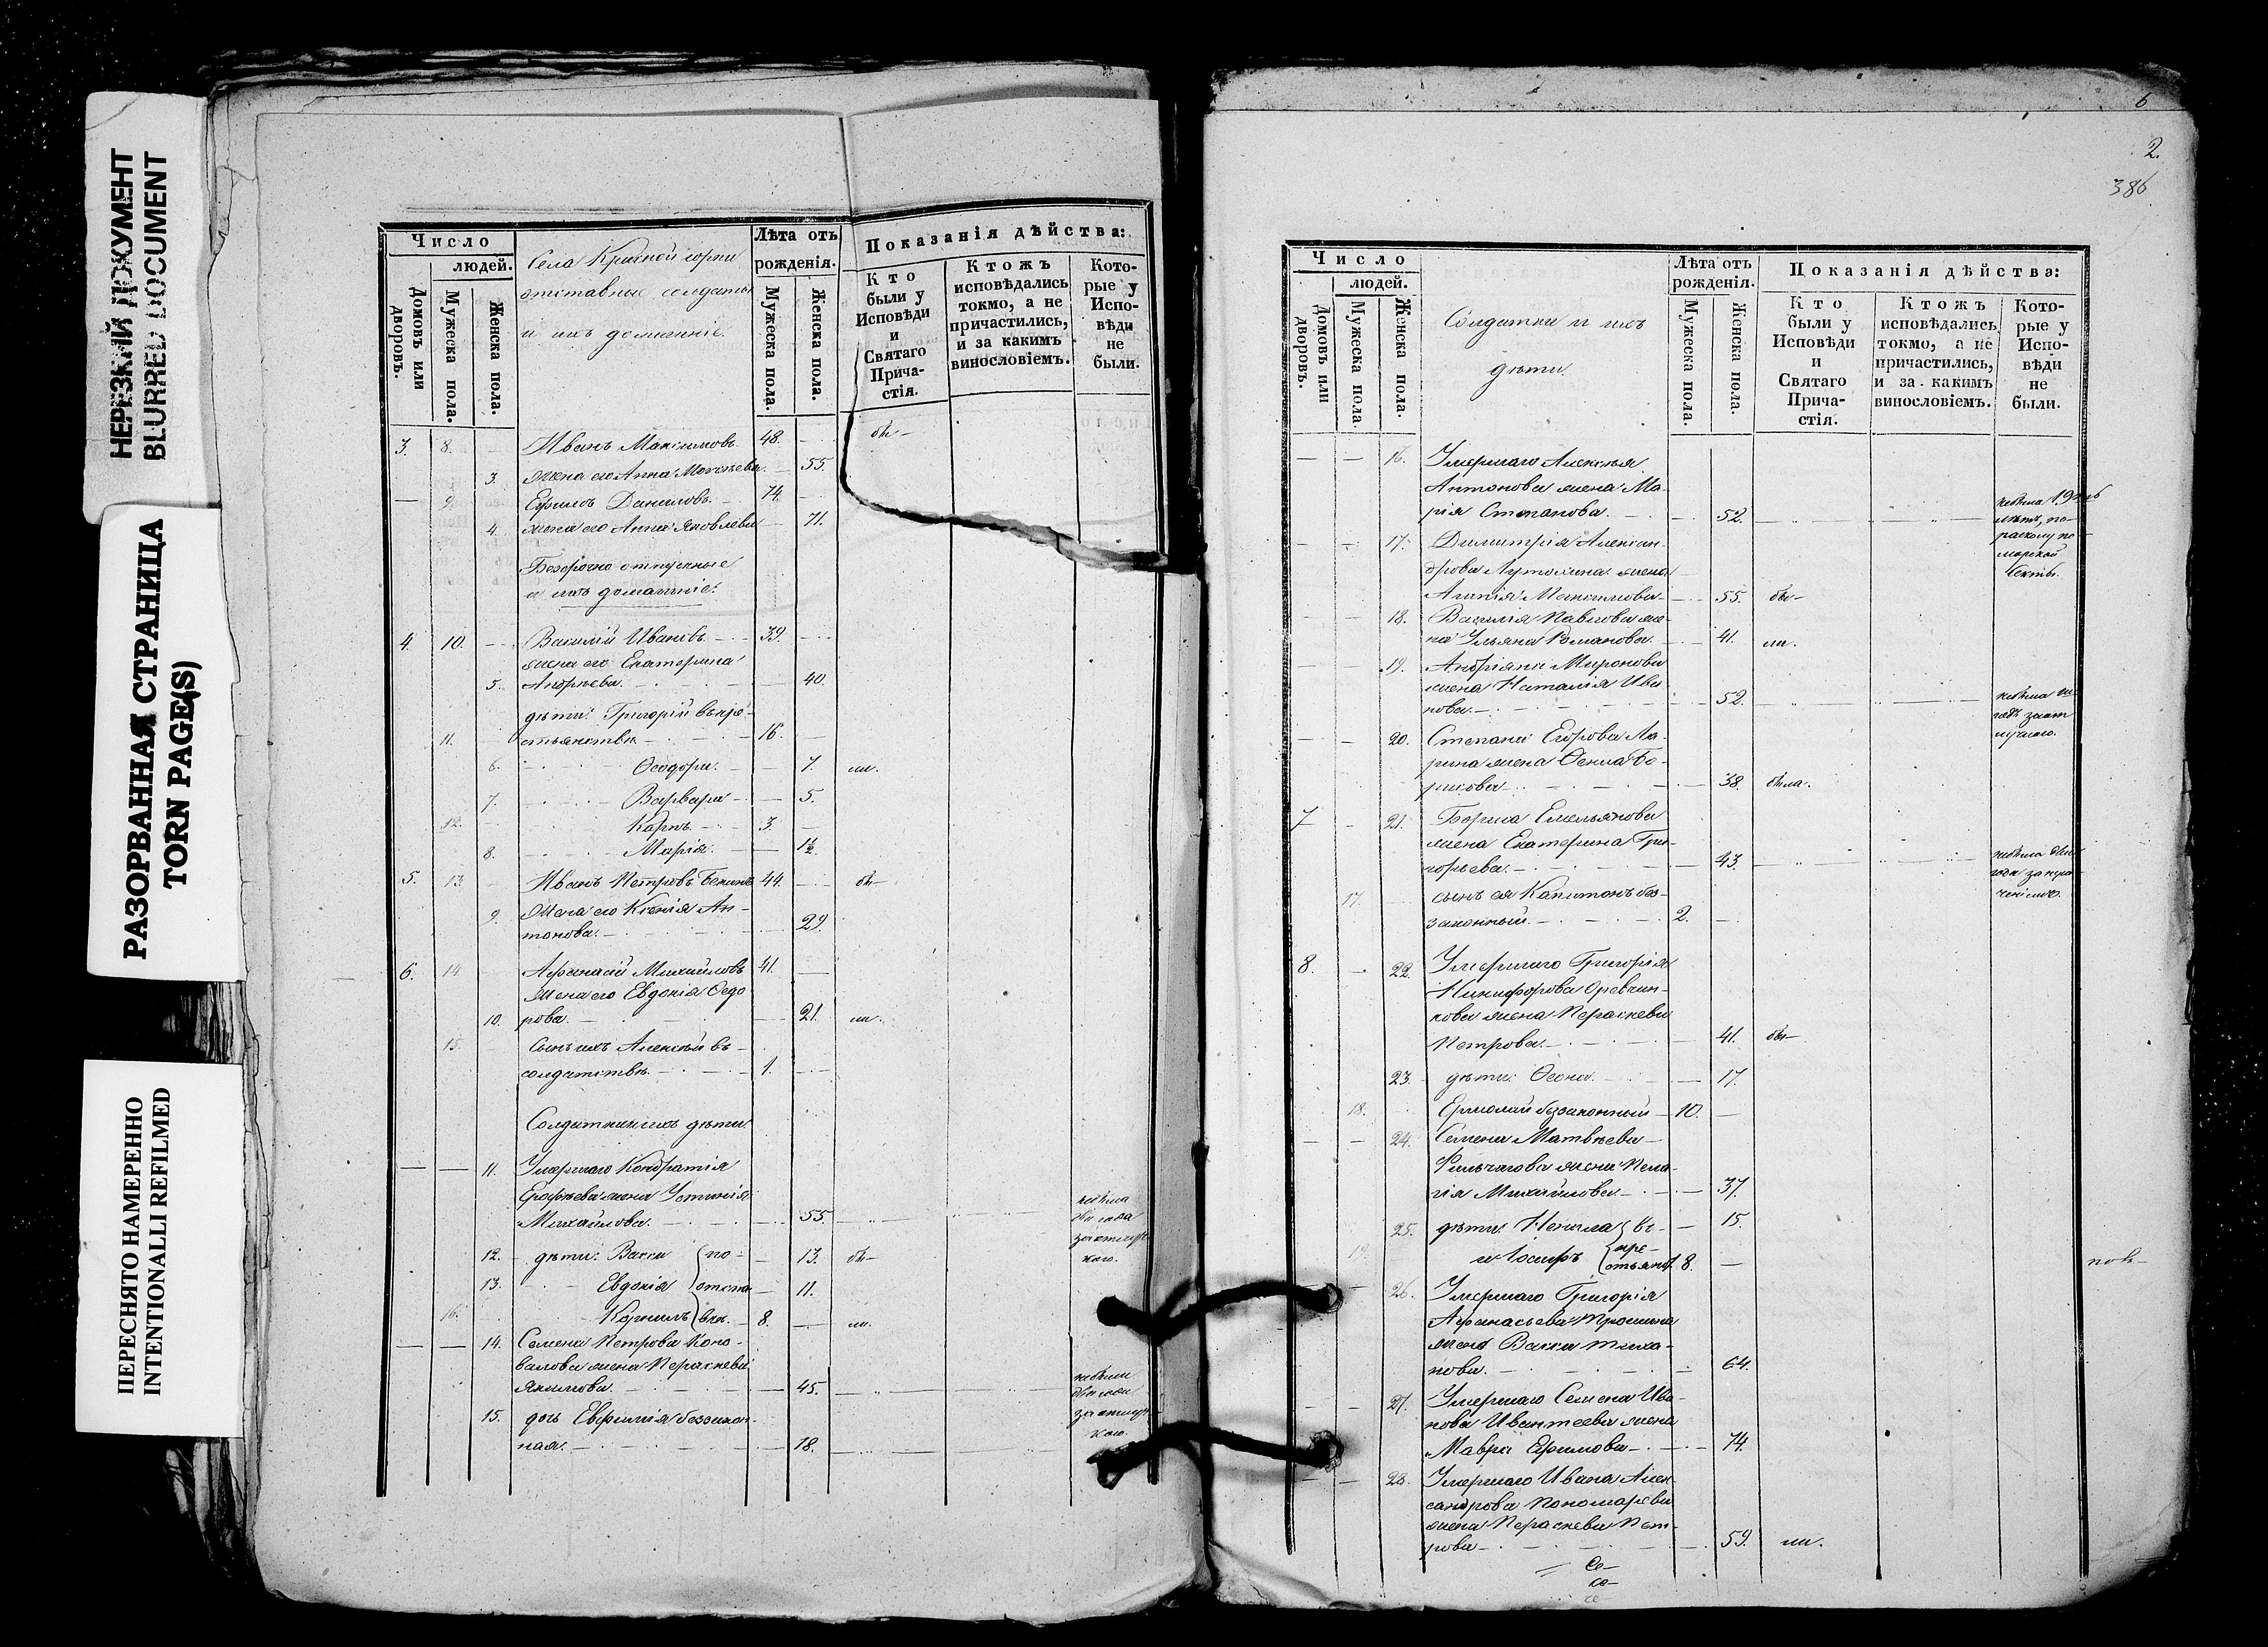 НЕРЕЗКИЙ ДОКУМЕНТ
BLURRED DOCUMENT
РАЗОРВАННАЯ СТРАНИЦА
TORN PAGE(S)
ПЕРЕСНЯТО НАМЕРЕННО
INTENTIONALLI REFILMED
Число
людей.
Домовъ или дворовъ.
Мужеска пола.
Женска пола.
Села Красной горки
отставные солдаты
и ихъ домашніе.
Лѣта отъ
рожденія.
Мужеска пола.
Женска пола.
Показанія дѣйства:
Кто
были у
Исповѣди
и
Святаго
Прича-
стія.
Ктожъ
исповѣдались
токмо, а не
причастились,
и за какимъ
винословіемъ.
Кото-
рые у
Испо-
вѣди
не
были.
3. 8. Иванъ Максимовъ 48. бы-
3. жена его Анна Моисеева 55.
9. Ефимъ Даниловъ. 74.
4. жена его Анна Яковлева 71.
Безсрочно отпускные
и ихъ домашніе.
4. 10. Василій Ивановъ 39.
жена его Екатерина
5. Андреева. 40.
дѣти: Григорій въ кре-
11. стьянствѣ 16.
6. Ѳеодора. 7. ли.
7. Варвара 5.
12. Карпъ. 3.
8. Марія. 1½.
5. 13. Иванъ Петровъ 44. бы-
9. Жена его Ксенія Ан-
тонова. 29.
6. 14. Афанасій Михайловъ 41.
Жена его Евдокія Ѳедо
10. рова. 21. ли.
15. сынъ ихъ Алексѣй въ
солдатствѣ 1.
Солдатки и ихъ дѣти
11. Умершаго Кондратія
Ерофѣева жена Устинія
Михайлова. 55. небыла
два года
за отлуч-
кою.
12. дѣти: Васса 13. бы-
13. Евдокія 11.
16. Корнилъ 8. ли.
14. Семена Петрова Коно-
валова жена Параскева
Якимова. 45. небыла
два года
за отлуч-
кою.
15. дочь Евфимія беззакон-
ная. 18.
6
2.
386
Число
людей.
Домовъ или дворовъ.
Мужеска пола.
Женска пола.
Солдатки и ихъ
дѣти.
Лѣта отъ
рожденія.
Мужеска пола.
Женска пола.
Показанія дѣйства:
Кто
были у
Исповѣди
и
Святаго
Прича-
стія.
Ктожъ
исповѣдались
токмо, а не
причастились,
и за какимъ
винословіемъ.
Кото-
рые у
Испо-
вѣди
не
были.
16. Умершаго Алексѣя
Антонова жена Ма-
рія Степанова. 52. небыла 19ть
лѣтъ, по
расколу по-
морской
секты.
17. Димитрія Алексан-
дрова жена
Агапія Максимова 55. бы-
18. Василія Павлова же-
на Ульяна Романова 41. ли.
19. Андріяна Миронова
жена Наталія Ива-
нова. 52. небыла
годъ за от
лучкою.
20. Степана Егорова Ла-
рина жена Ѳекла Бо-
рисова 38. была.
7 21. Бориса Емельянова
жена Екатерина Гри-
горьева. 43. небыла два
года за отлу-
17. сынъ ея Капитонъ без-
законный. 2.
8. 22. Умершаго Григорія
Никифорова
жена Параскева
Петрова. 41. бы-
23. дѣти: Ѳеона. 17.
18. Ермолай беззаконный 10.
24. Семена Матвѣева
жена Пела-
гія Михайлова 37.
25. дѣти: Ненила въ 15.
19. и Іосифъ кре-
стьянст 8.
26. Умершаго Григорія
Афанасьева Трошина
жена Васса Тиха-
нова. 64.
27. Умершаго Семена Ива-
нова Ивантеева жена
Мавра Ефимова 74.
28. Умершаго Ивана Алек-
сандрова Пономарева
жена Параскева Пет-
рова 59. ли.
Се-